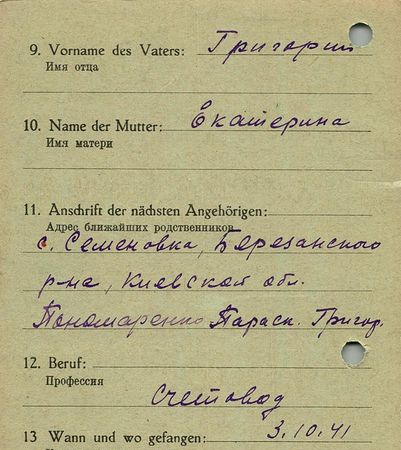 9. Vorname des Vaters: Григорий
Имя отца
10. Name der Mutter: Екатерина
Имя матери
11. Anschrift der nächsten Angehörigen:
Адрес ближайших родственников
с. Семеновка, Березанского
р-на, Киевской обл.
Пономаренко Параск. Григор.
12. Beruf:
Профессия
Счетовод
13 Wann und wo gefangen: 3.10.41